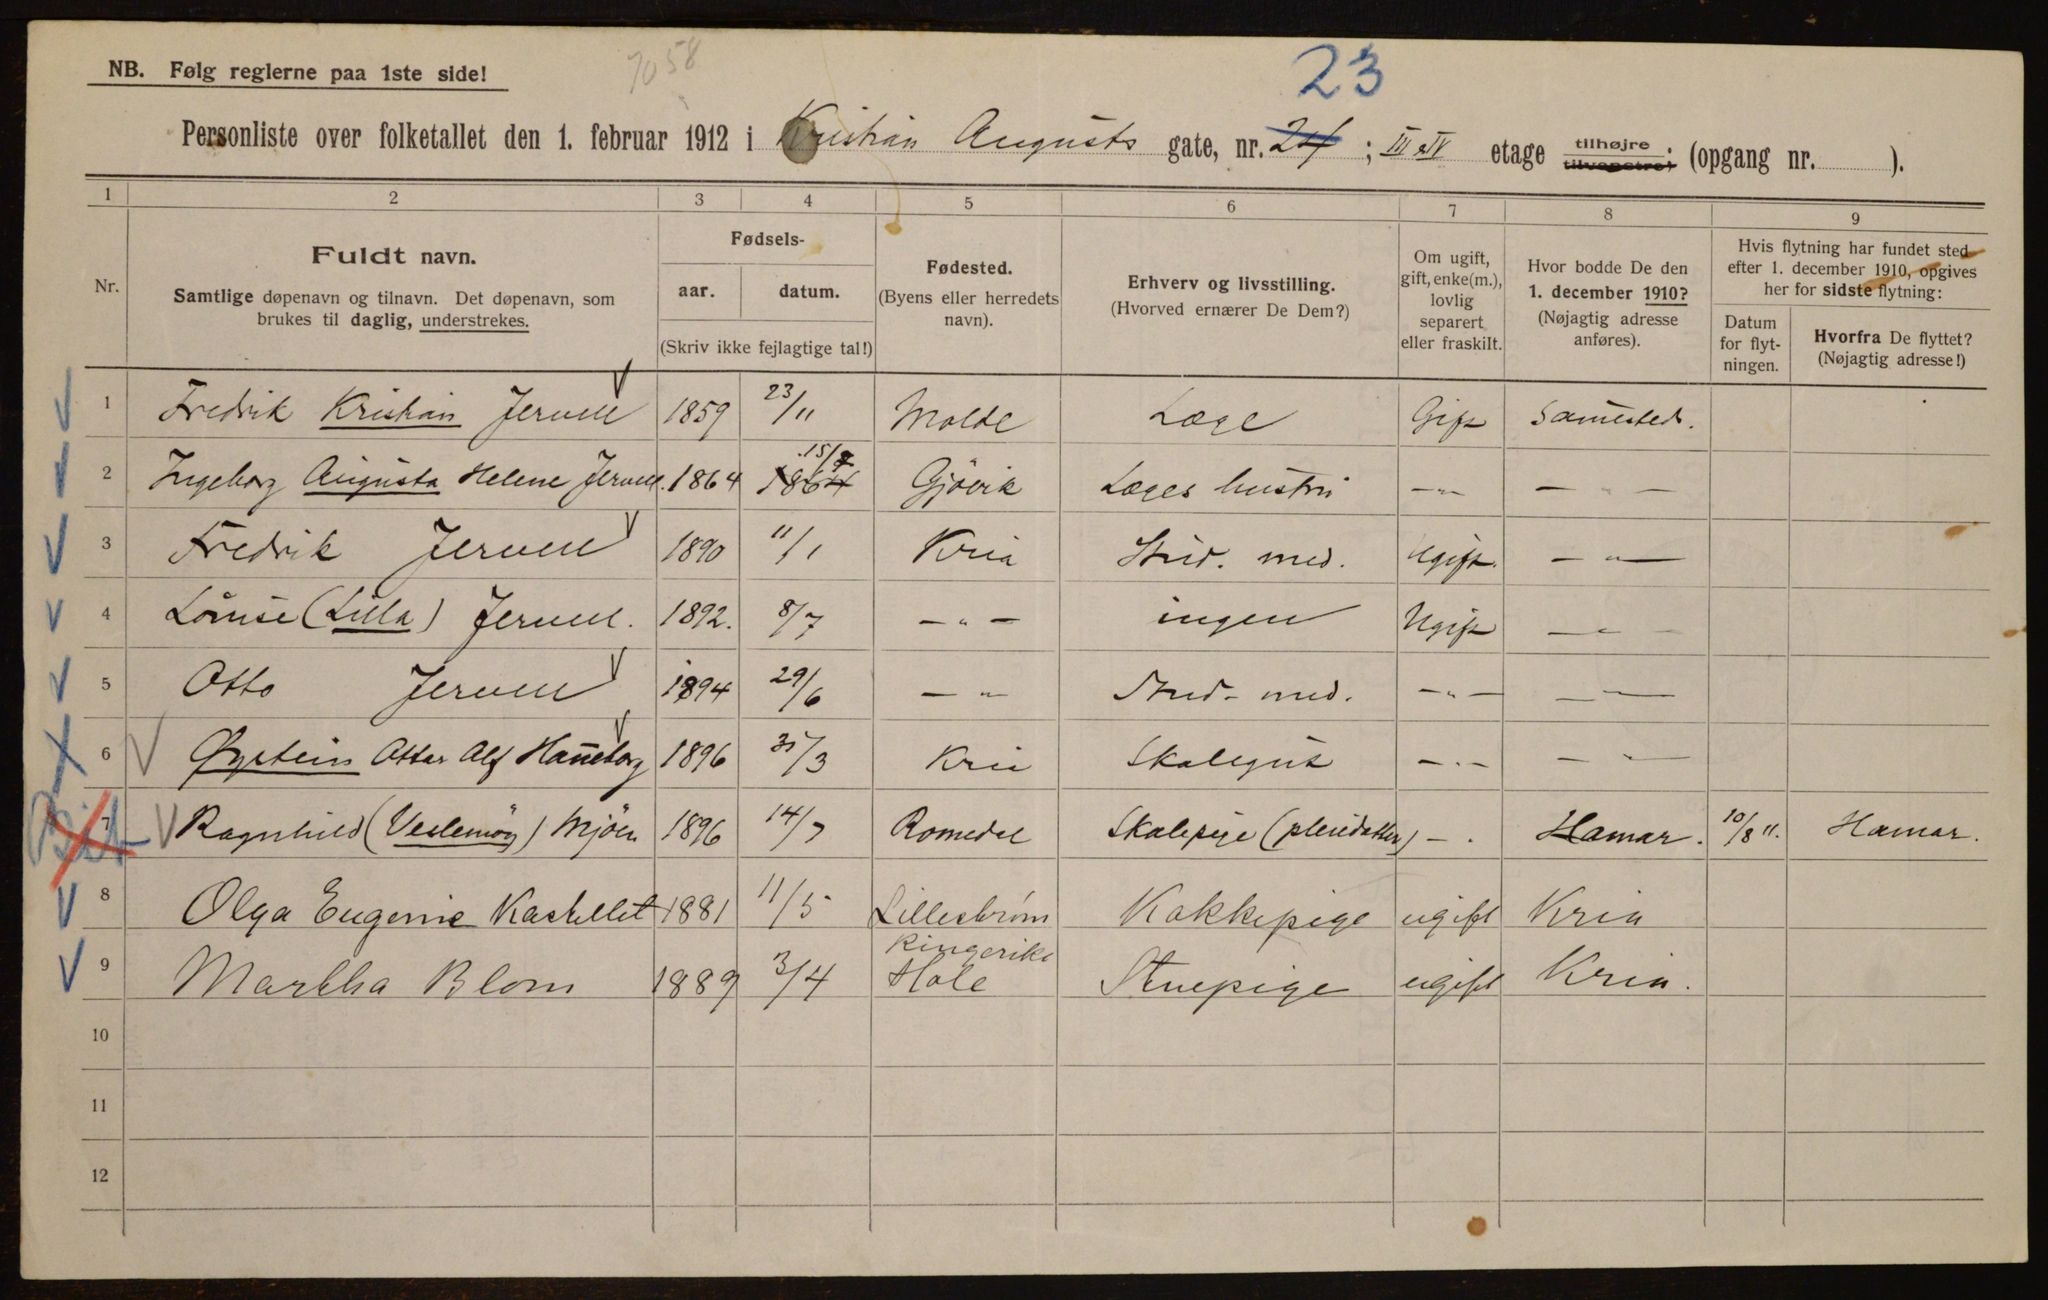 7058
23
NB. Følg reglerne paa 1ste side!
Personliste over folketallet den 1. februar 1912 i Kristian Augusts gate, nr. 24 ; III & IV etage tilhøjre tilvenstre; (opgang nr. ).
1 2 3 4 5 6 7 8 9
Nr.
Fuldt navn.
Samtlige døpenavn og tilnavn. Det døpenavn, som
brukes til daglig, understrekes.
Fødsels-
aar. datum.
(Skriv ikke fejlagtige tal!)
Fødested.
(Byens eller herredets
navn).
Erhverv og livsstilling.
(Hvorved ernærer De Dem?)
Om ugift,
gift, enke(m.),
lovlig
separert
eller fraskilt.
Hvor bodde De den
1. december 1910?
(Nøjagtig adresse
anføres).
Hvis flytning har fundet sted
efter 1. december 1910, opgives
her for sidste flytning:
Datum
for flyt-
ningen.
Hvorfra De flyttet?
(Nøjagtig adresse!)
1 Fredrik Kristian Jervell 1859 23/11 Molde Læge Gift Sammesteds.
2 Ingeborg Augusta Helene Jervell. 1864 1864 15/7 Gjövik Læges hustru -"- - " -
3 Fredrik Jervell 1890 11/1 Kria Stud. med. Ugift. - " -
4 Louise (Lilla) Jervell. 1892. 8/7 - " - ingen Ugift - " -
5 Otto Jervell 1894 29/6 - " - Stud. med. - " - - " -
6 Øystein Ottar Alf Hanneborg 1896 31/3 Kria Skolegut - " - - " -
7 Ragnhild (Veslemöy) Mjöen 1896 14/7 Romedal Skolepige (pleiedatter) - . Hamar. 10/8 11. Hamar.
8 Olga Eugenie Kastellet 1881 11/5 Lillestrøm Kokkepige ugift Kria
9 Martha Blom 1889 3/4 Ringerike Hole Stuepige ugift Kria.
10
11
12